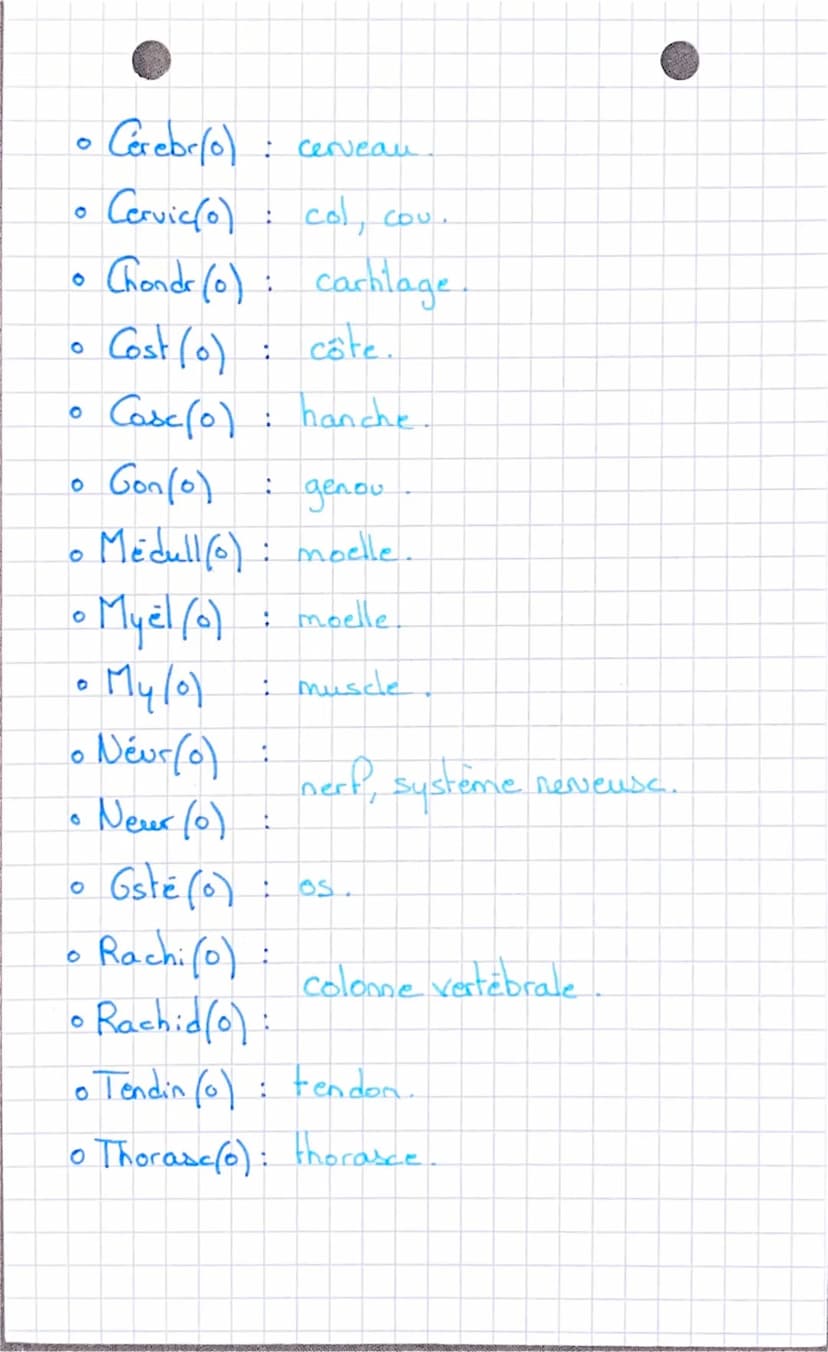 • Cérebr(o) : cerveau.
• Cervic(o) : col, cou.
• Chondr(o) : cartilage.
• Cost(o) : côte.
• Cox(o) : hanche.
• Gon(o) : genou.
• Médull(o) : moelle.
• Myél(o) : moelle.
• My(o) : muscle.
• Névr(o) :
nerf, système nerveux.
• Neur(o) :
• Osté(o) : os.
• Rachi(o) :
colonne vertébrale.
• Rachid(o) :
• Tendin(o) : tendon.
• Thorax(o) : thorax.